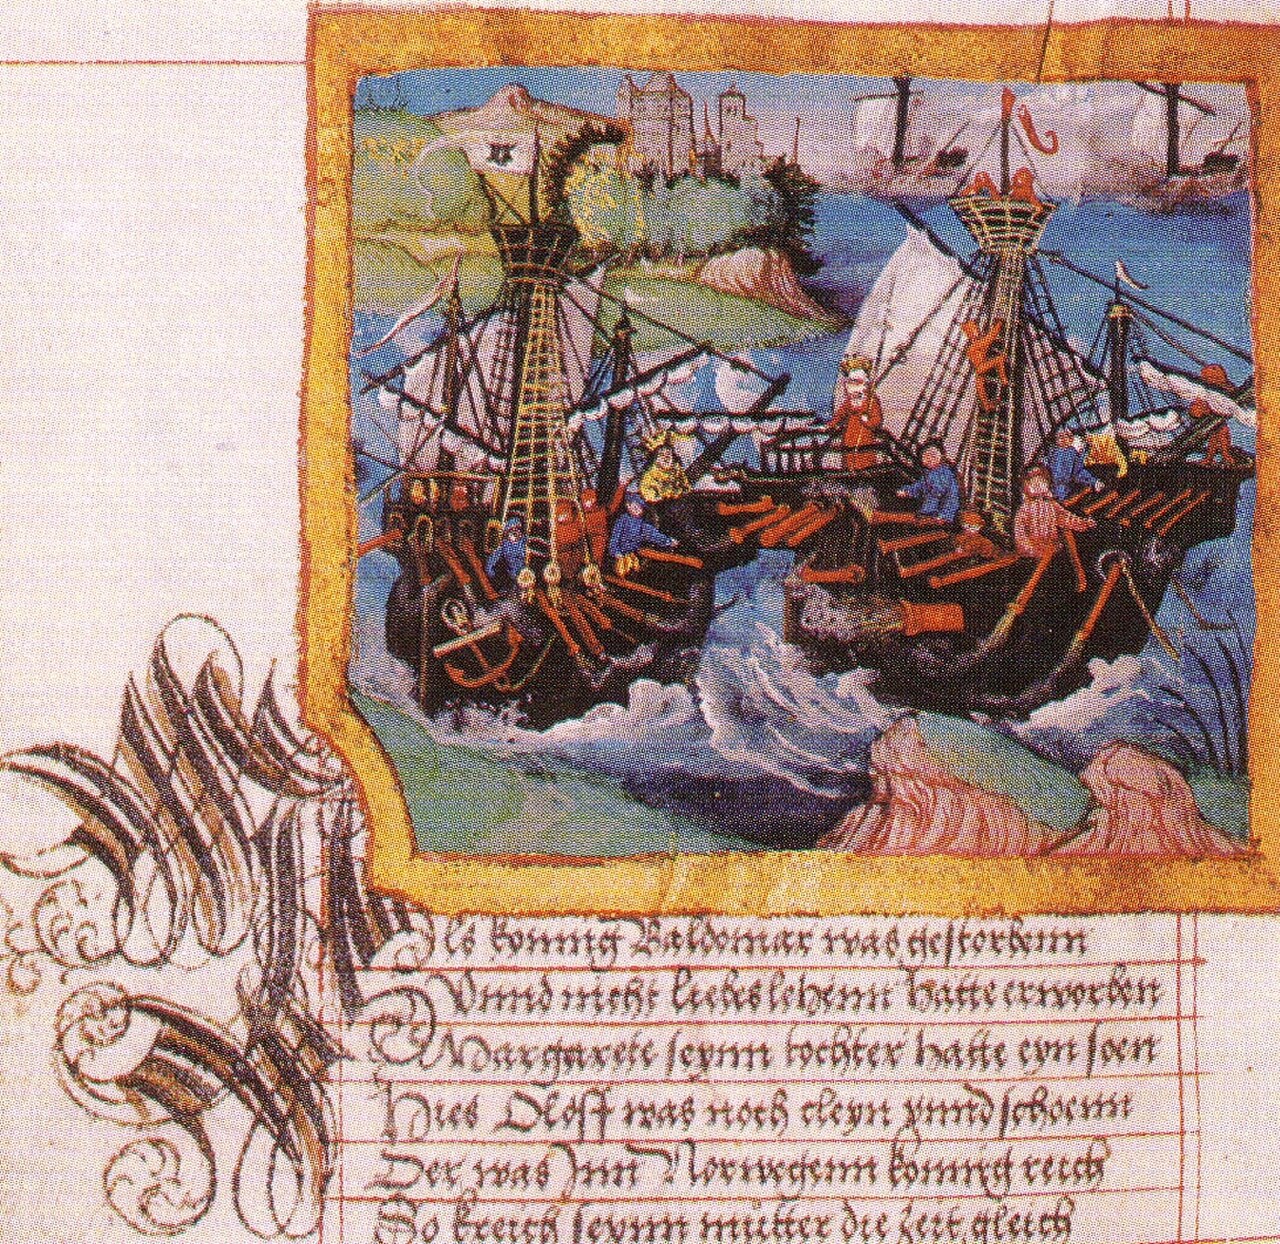 Als konnig Waldomar was gestorbenn
Vnnd nicht liebes lehenn hatte erworben
Margarete seynn tochter hatte eyn soen
Hies Oloff was noch cleyn vnnd schoenn
Der was Inn Norwegenn konnig reich
So kreich seynn mutter die zeit gleich